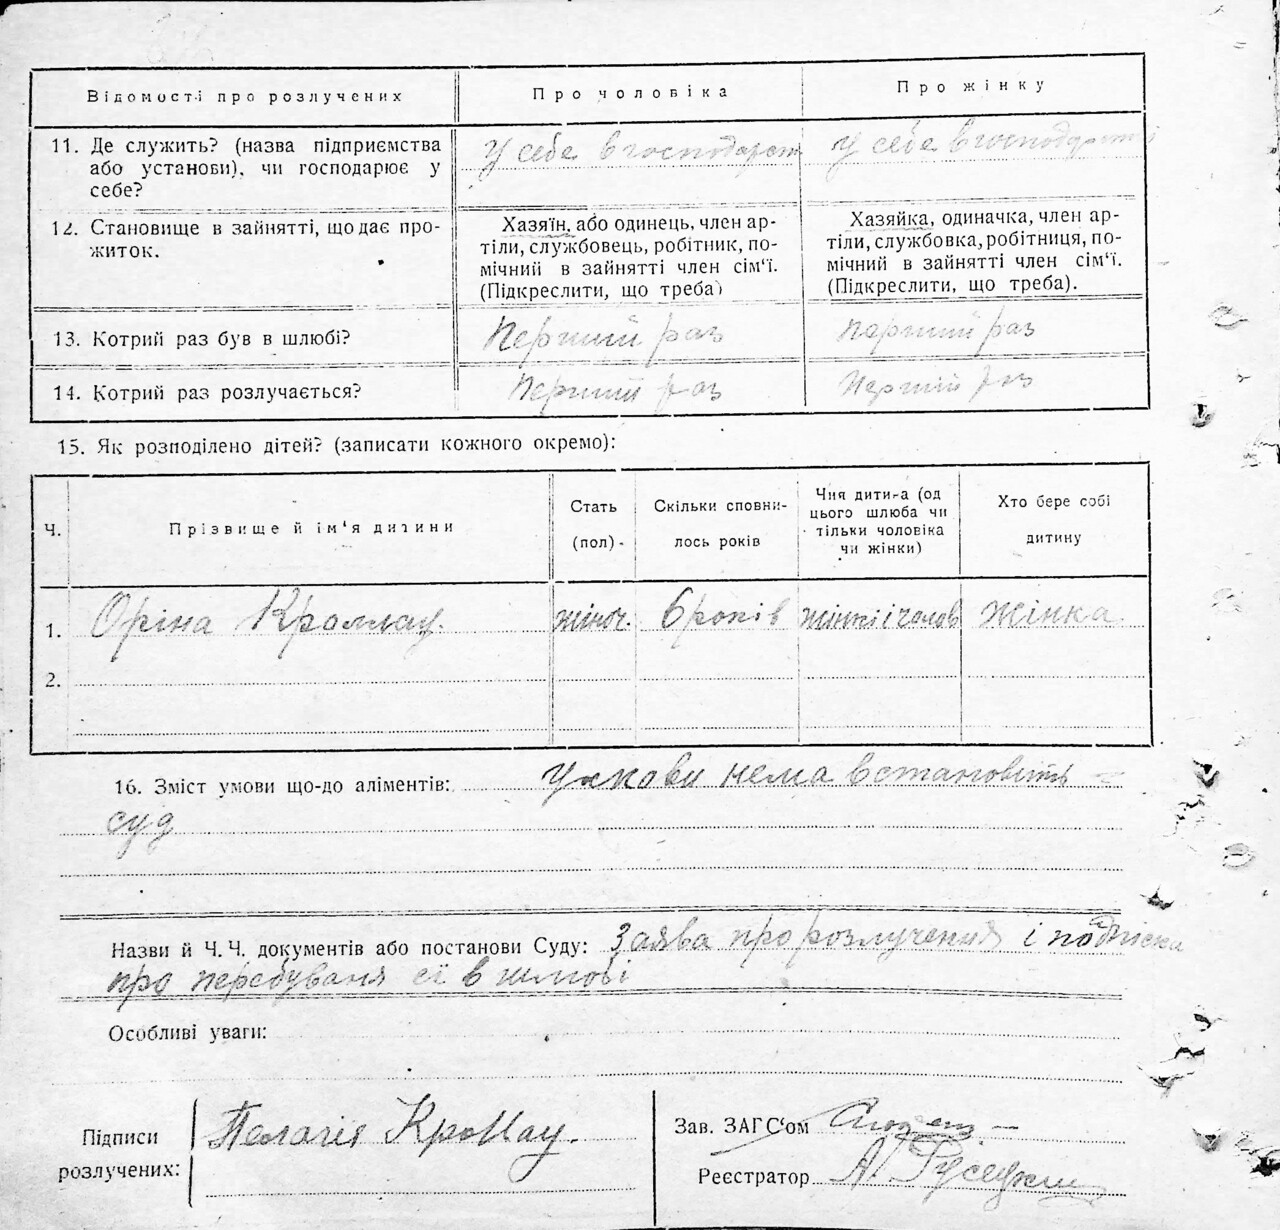 Відомості про розлучених Про чоловіка Про жінку
11. Де служить? (назва підприємства
або установи), чи господарює у
себе?
У себе в господарст
У себе в господарстві
12. Становище в зайнятті, що дає про-
житок.
Хазяїн, або одинець, член ар-
тіли, службовець, робітник, по-
мічний в зайнятті член сім'ї.
(Підкреслити, що треба)
Хазяйка, одиначка, член ар-
тіли, службовка, робітниця, по-
мічний в зайнятті член сім'ї.
(Підкреслити, що треба).
13. Котрий раз був в шлюбі? Перший раз Перший раз
14. Котрий раз розлучається? Перший раз Перший раз
15. Як розподілено дітей? (записати кожного окремо):
Ч.
Прізвище й ім'я дитини
Стать
(пол)
Скільки сповни-
лось років
Чия дитина (од
цього шлюба чи
тільки чоловіка
чи жінки)
Хто бере собі
дитину
1. Оріна жіноч. 6 років жінки і чолов жінка
2.
16. Зміст умови що-до аліментів: умови нема встановить
суд
Назви й Ч. Ч. документів або постанови Суду: Заява про розлучения і подписка
про перебуваня в
Особливі уваги:
Підписи
розлучених:
Пелагія
Зав. ЗАГС'ом
Реєстратор А.